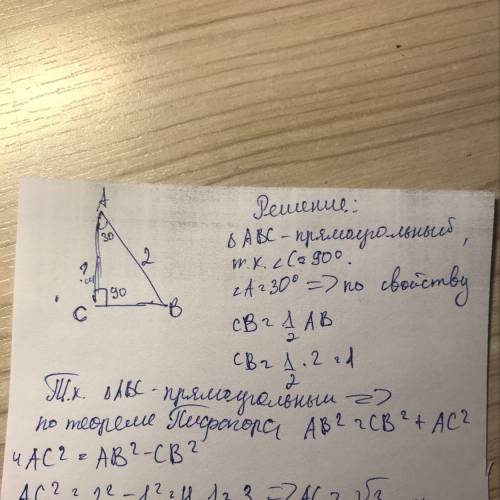 A
30
?
см
2
90
C
B
Решение:
△ABC - прямоугольный,
т.к. ∠C=90°.
∠A=30° => по свойству
CB = 1/2 AB
CB = 1/2 · 2 = 1
Т.к. △ABC - прямоугольный =>
по теореме Пифагора AB² = CB² + AC²
и AC² = AB² - CB²
AC² = 2² - 1² = 4 - 1 = 3 => AC = √3